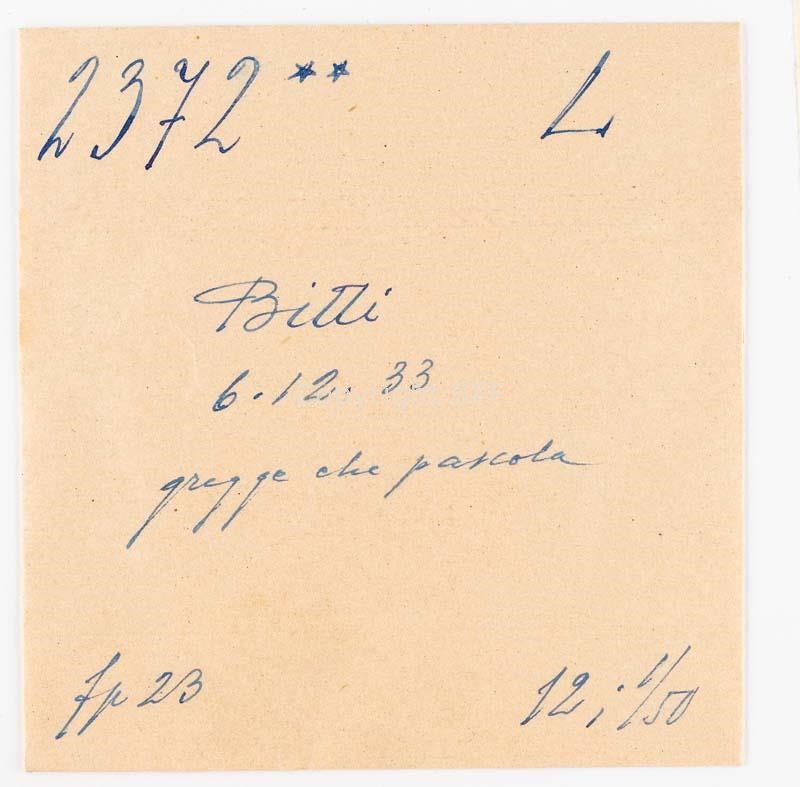 2372** L
Bitti
6.12.33
gregge che pascola
fp 23 12; 1/50